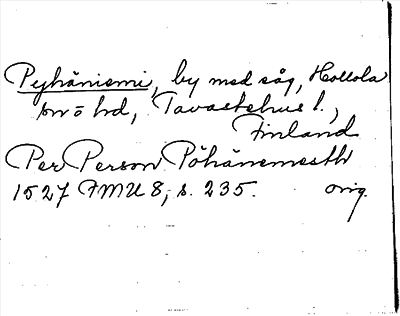 Pyhäniemi, by med såg, Hollola
sn o hd, Tavastehus l.,
Finland
Per Person Pöhänemesth
1527 FMU 8, s. 235. orig.